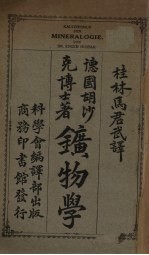 MINERALOGIE
桂林馬君武譯
德國胡沙
克博士著
鑛物學
科學會編譯部出版
商務印書館發行